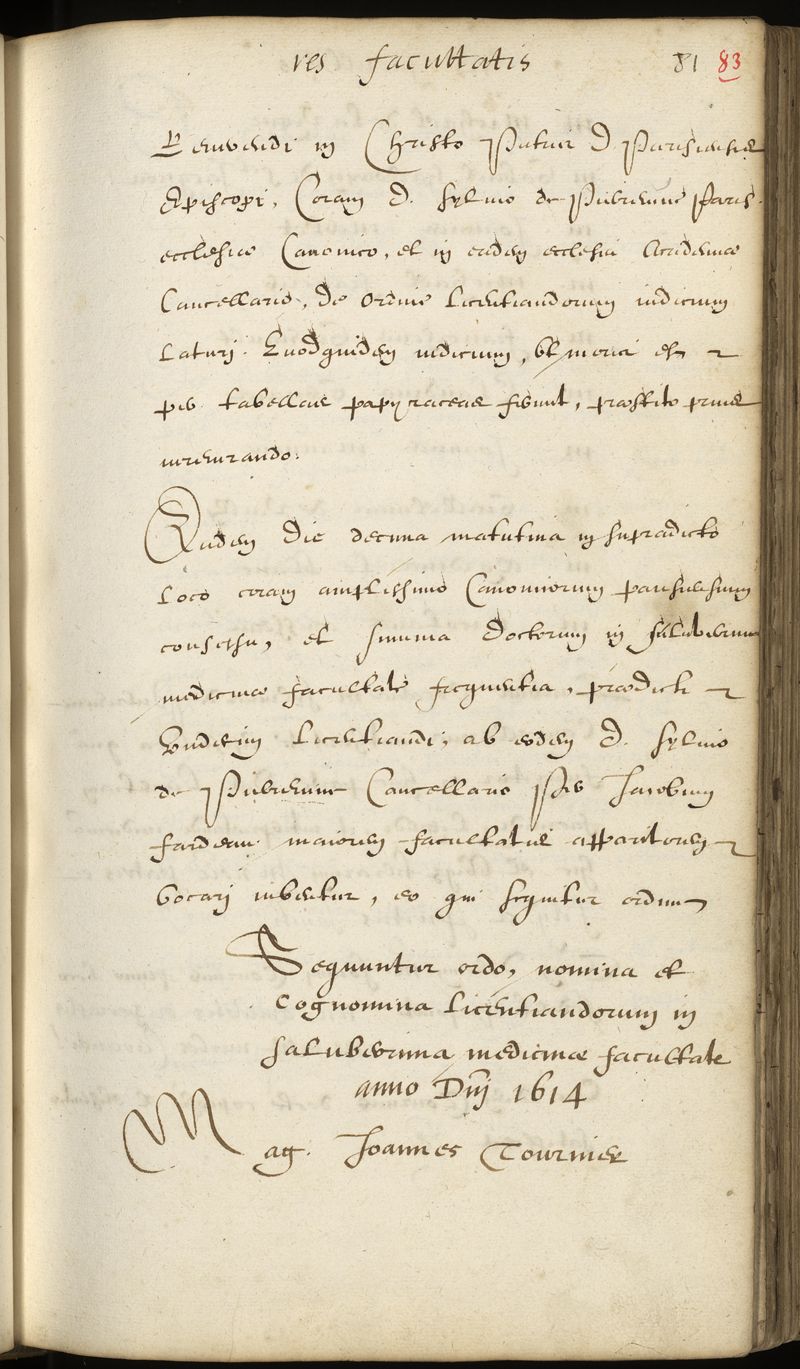 res facultatis 81 83
Reuerendi in Christo Patris D Parisiensis
Episcopi, Coram D. Syluio de Pierreuiue Paris.
ecclesiæ Canonico, et in eadem ecclesia Academiæ
Cancellario, de ordine licentiandorum iudicium
Laturj. Quodquidem iudicium, vt moris est
per tabellas papyraceas ferunt, præstito prius
iureiurando.
Eadem die decima matutina in supradicto
Loco coram amplissimo Canonicorum parisiensium
consessu, et summa doctorum in saluberrima
medicinæ facultate frequentia, prædicti
Baudetim licentiandi, ab eodem D. syluio
de Pierreuiue Cancellario per Jacobum
fardeau maiorem facultatis apparitorem
vocarj iubentur, eo qui sequitur ordine
Sequuntur ordo, nomina et
Cognomina licentiandorum in
saluberrima medicinæ facultate
anno Dnj 1614
Mag. Joannes Tournier